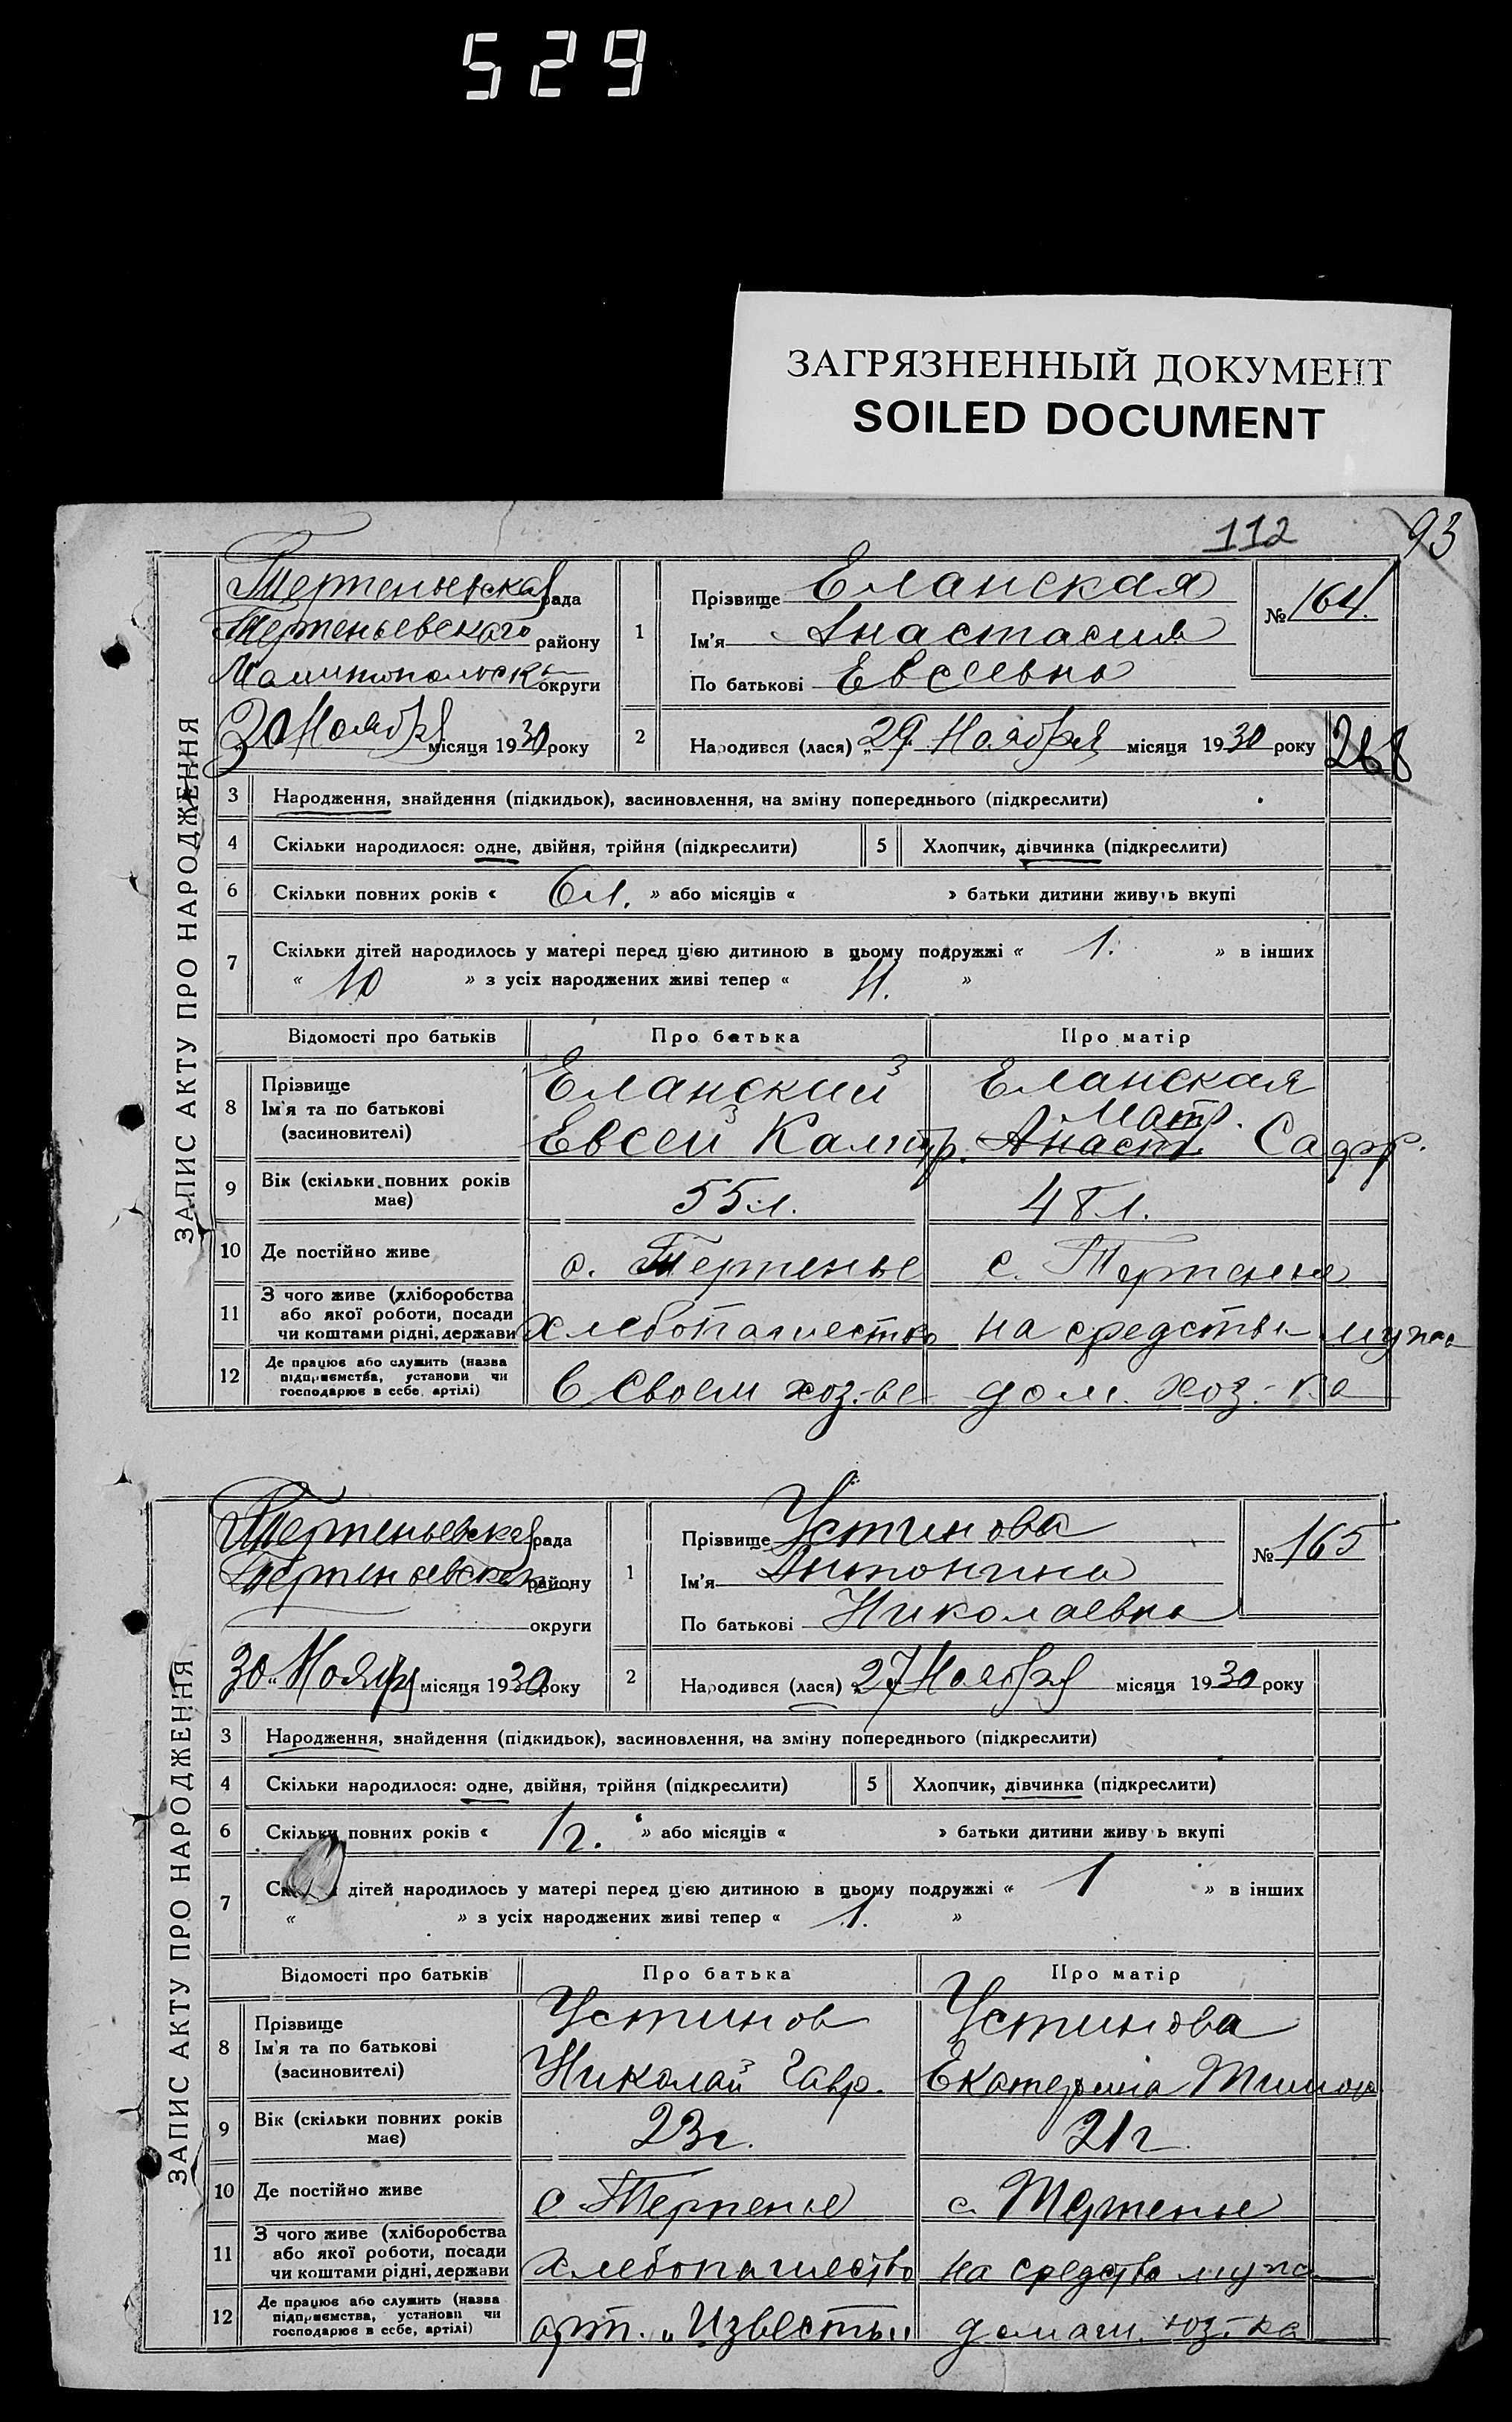 529
ЗАГРЯЗНЕННЫЙ ДОКУМЕНТ
SOILED DOCUMENT
112
93
ЗАПИС АКТУ ПРО НАРОДЖЕННЯ
Терпеньевская рада
Терпеньевского району
округи
30 Ноября місяця 1930 року
1
Прізвище Еланская
Ім'я Анастасия
По батькові Евсеевна
№ 164.
2
Народився (лася) „29 Ноября місяця 1930 року
268
3 Народження, знайдення (підкидьок), засиновлення, на зміну попереднього (підкреслити)
4 Скільки народилося: одне, двійня, трійня (підкреслити) 5 Хлопчик, дівчинка (підкреслити)
6 Скільки повних років « 6 л. » або місяців « » батьки дитини живуть вкупі
7 Скільки дітей народилось у матері перед цією дитиною в цьому подружжі « 1. » в інших
« 10 » з усіх народжених живі тепер « »
Відомості про батьків Про батька Про матір
8 Прізвище
Ім'я та по батькові
(засиновителі)
Еланский
Евсей
Еланская
Матр.
Анаст.
9 Вік (скільки повних років
має)
55 л. 48 л.
10 Де постійно живе с. Терпенье с. Терпенье
11 З чого живе (хліборобства
або якої роботи, посади
чи коштами рідні, держави
хлебопашество на средства мужа
12 Де працює або служить (назва
підприємства, установи чи
господарює в себе, артілі)
в своем хоз-ве дом. хоз-ка
ЗАПИС АКТУ ПРО НАРОДЖЕННЯ
Терпеньевская рада
району
округи
30 „ Ноября місяця 1930 року
1
Прізвище Устинова
Ім'я Антонина
По батькові Николаевна
№ 165
2
Народився (лася) 27 Ноября місяця 1930 року
3 Народження, знайдення (підкидьок), засиновлення, на зміну попереднього (підкреслити)
4 Скільки народилося: одне, двійня, трійня (підкреслити) 5 Хлопчик, дівчинка (підкреслити)
6 Скільки повних років « 1 г. » або місяців « » батьки дитини живуть вкупі
7 дітей народилось у матері перед цією дитиною в цьому подружжі « 1 » в інших
« » з усіх народжених живі тепер « 1. »
Відомості про батьків Про батька Про матір
8 Прізвище
Ім'я та по батькові
(засиновителі)
Устинов
Николай Гавр.
Устинова
Екатерина
9 Вік (скільки повних років
має)
23 г. 21 г
10 Де постійно живе с. Терпенье с. Терпенье
11 З чого живе (хліборобства
або якої роботи, посади
чи коштами рідні, держави
хлебопашество на средства мужа
12 Де працює або служить (назва
підприємства, установи чи
господарює в себе, артілі)
арт. „Известь" домаш. хоз-ка